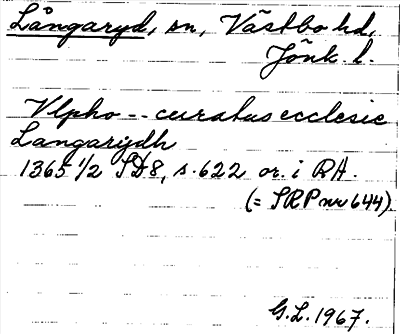 Långaryd, sn, Västbo hd,
Jönk. l.
Vlpho -- curatus ecclesie
Langarydh
1365 1/2 SD8, s. 622 or. i RA.
(= SRP nr 644)
G.L. 1967.